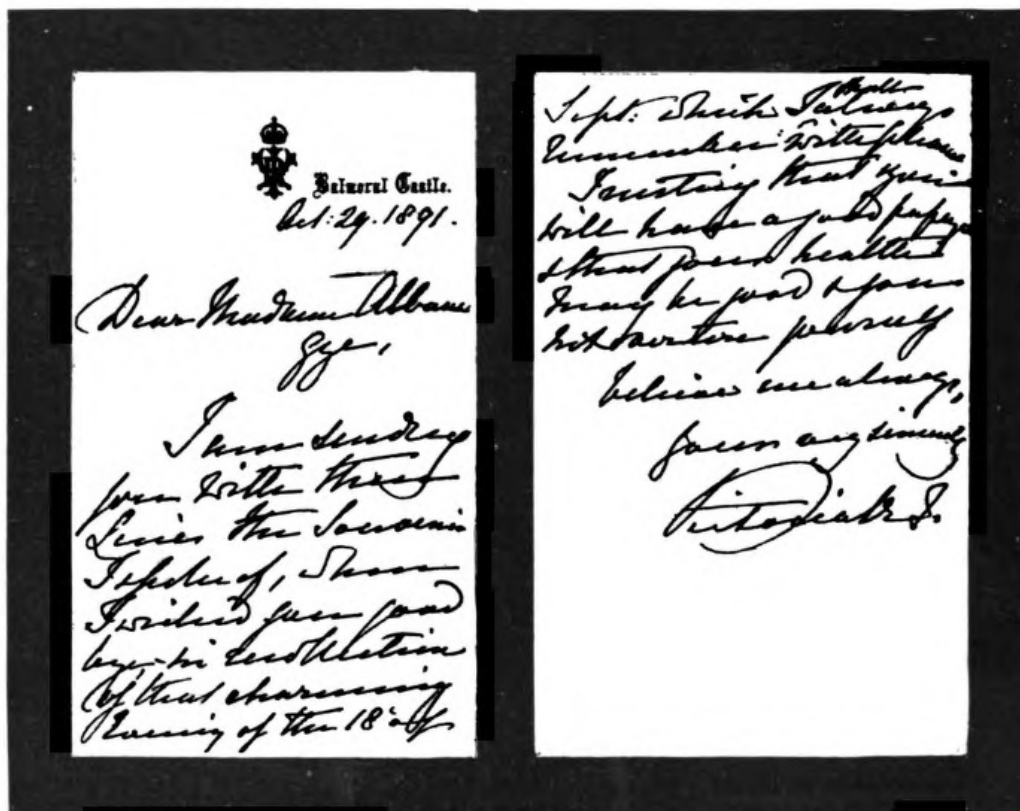 Balmoral Castle.
Oct: 29. 1891.
Dear Madame Albani
Gye,
I am sending
you with these
Lines the Souvenir
I spoke of, when
I wished you good
bye, in recollection
of that charming
Evening of the 18th of
Sept: which I shall always
remember with pleasure
Trusting that you
will have a good passage
& that your health
may be good & you
not overtire yourself
believe me always,
yours very sincerely
Victoria R I.